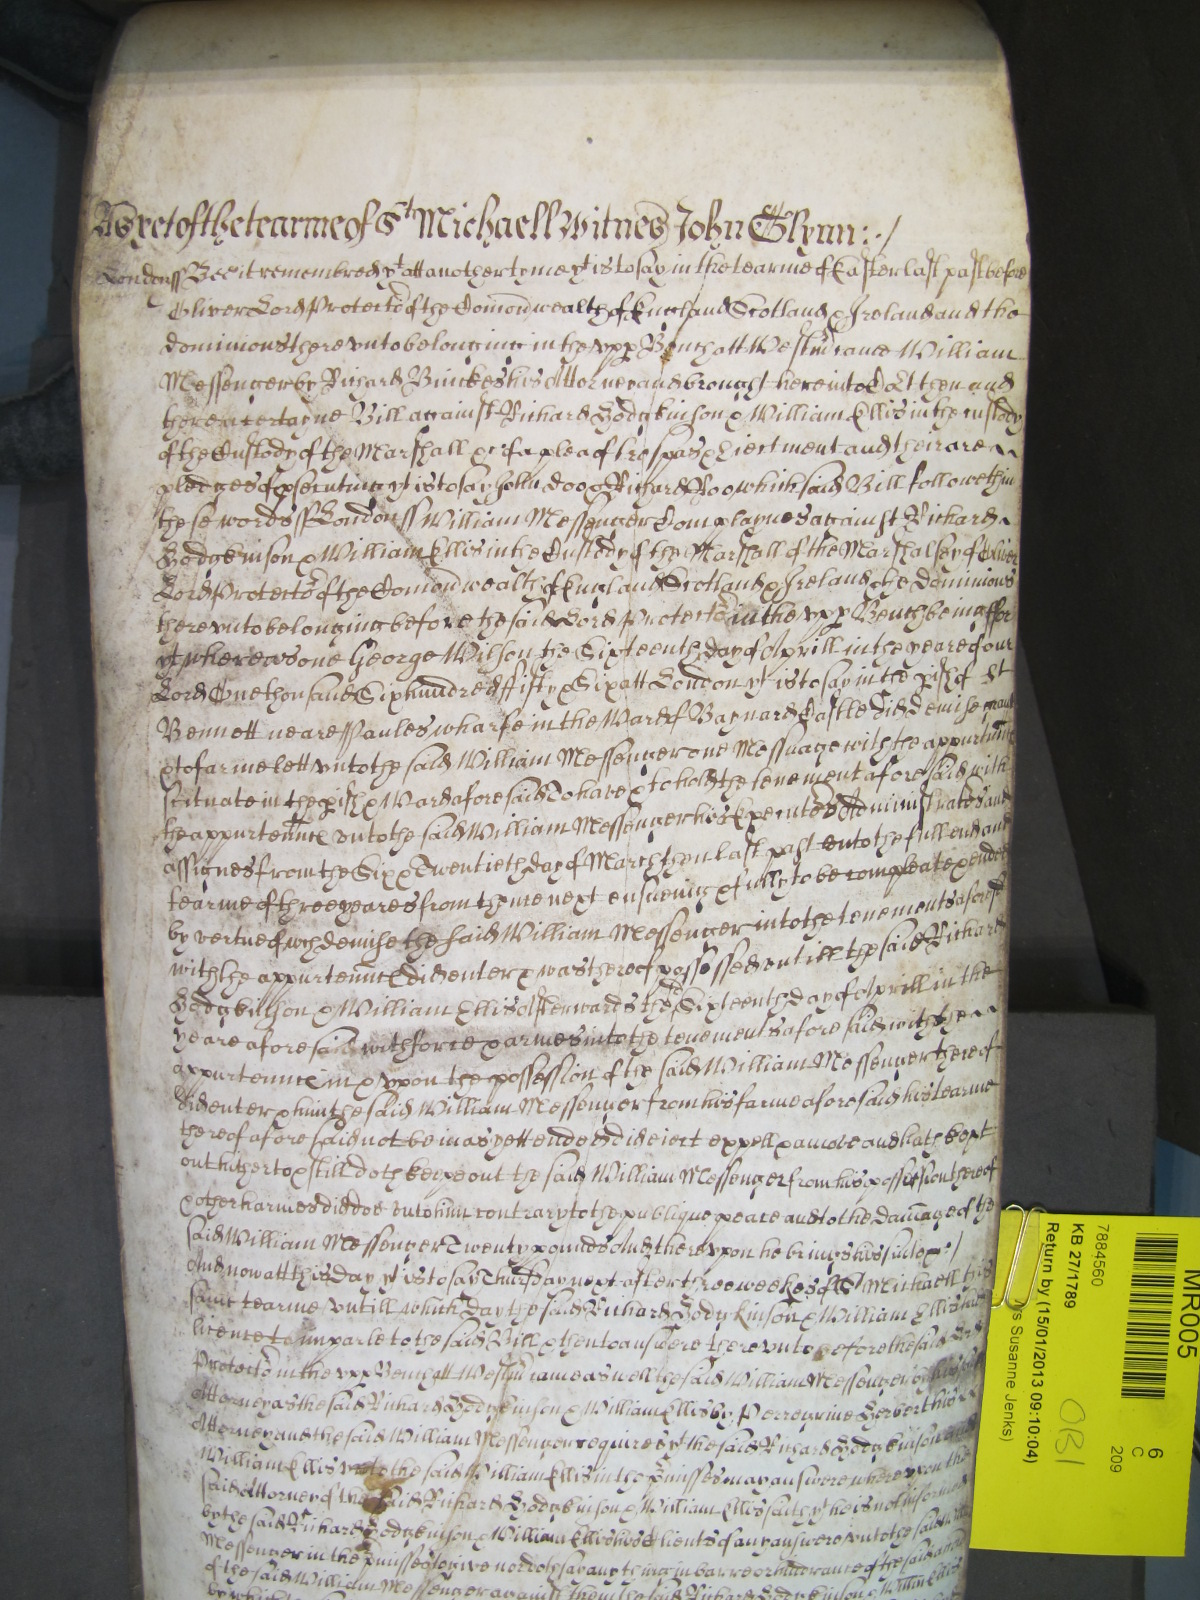 As yet of the tearme of St Michaell Witnes John Glynn :./
Londonss Bee it remembred yt att another tyme yt is to say in the tearme of Easter last past before
Oliver Lord Protector of the Comonwealth of England Scotland & Ireland and the
dominions there vnto belonging in the vpp Bench att Westmr came William
Messenger by Richard Binckes his Attorney and brought here into Ct then and
there a certayne Bill against Richard Hodgkinson & William Ellis in the custody
of the Custody of the Marshall &c of a plea of trespas & Eiectment and their are
pledges of psecuting yt is to say John doo & Richard Roo which said Bill followeth in
these words ss Londonss William Messenger Complaynes against Richard
Hodgkinson & William Ellis in the Custody of the Marshall of the Marshalsey of Oliver
Lord Protector of the Comonwealth of England Scotland & Ireland & the Dominions
there vnto belonging before the said Lord Protector in the vpp Bench being ffor
yt whereas one George Wilson the Sixteenth day of Aprill in the yeare of our
Lord One thousand Six hundred ffifty & Six att London yt is to say in the pish of St
Bennett neare Paules wharfe in the Ward of Baynards Castle did demise grant
& to farme lett vnto the said William Messenger one Messuage with the appurtennce
scituate in the pish & Ward aforesaid To have & to hold the tenement aforesaid with
the appurtennce vnto the said William Messenger his Executors Administrators and
assignes from the Six & Twentieth day of March then last past vnto the full end and
tearme of three yeares from thence next ensueing & fully to be compleate & ended
by vertue of wch demise the said William Messenger into the tenements aforesd
with the appurtennce did enter & was thereof possessed untill the said Richard
Hodgkinson & William Ellis Afterwards the sd Sixteenth day of Aprill in the
yeare aforesaid with force & armes into the tenements aforesaid with the
appurtennce in & vpon the possession of the said William Messenger thereof
did enter & him the said William Messenger from his farme aforesaid his tearme
thereof aforesaid not being as yett ended did eiect expell & amove and hath kept
out hitherto & still doth keepe out the said William Messenger from his possession thereof
& other harmes did doe vnto him contrary to the publique peace and to the damage of the
said William Messenger Twenty pounds And therevpon he brings his suite &c /
And now att this day yt is to say Thursday next after three weekes of St Michaell this
same tearme vntill which day the said Richard Hodgkinson & William Ellis had
licence to imparle to the said Bill & then to answere there vnto before the said Lord
Protector in the vpp Bench att Westmr came as well the said William Messenger by his
Attorney as the said Richard Hodgkinson & William Ellis by Perregrine Herbert his
Attorney and the said William Messenger requires yt the said Richard Hodgkinson and
William Ellis vnto the said William Ellis in the pmisses may answere wherevpon the
said Attorney of the said Richard Hodgkinson & William Ellis saith yt he is not informed
by the said Richard Hodgkinson & William Ellis his clients of any answere vnto the said William
Messenger in the pmisses to give nor doth say any thing in barre or hindrance of the said
of the said William Messenger against them the said Richard Hodgkinson & William Ellis
by which
MR005
6
C
209
7884560
KB 27/1789
Return by (15/01/2013 09:10:04)
Mrs Susanne Jenks)
OBJ